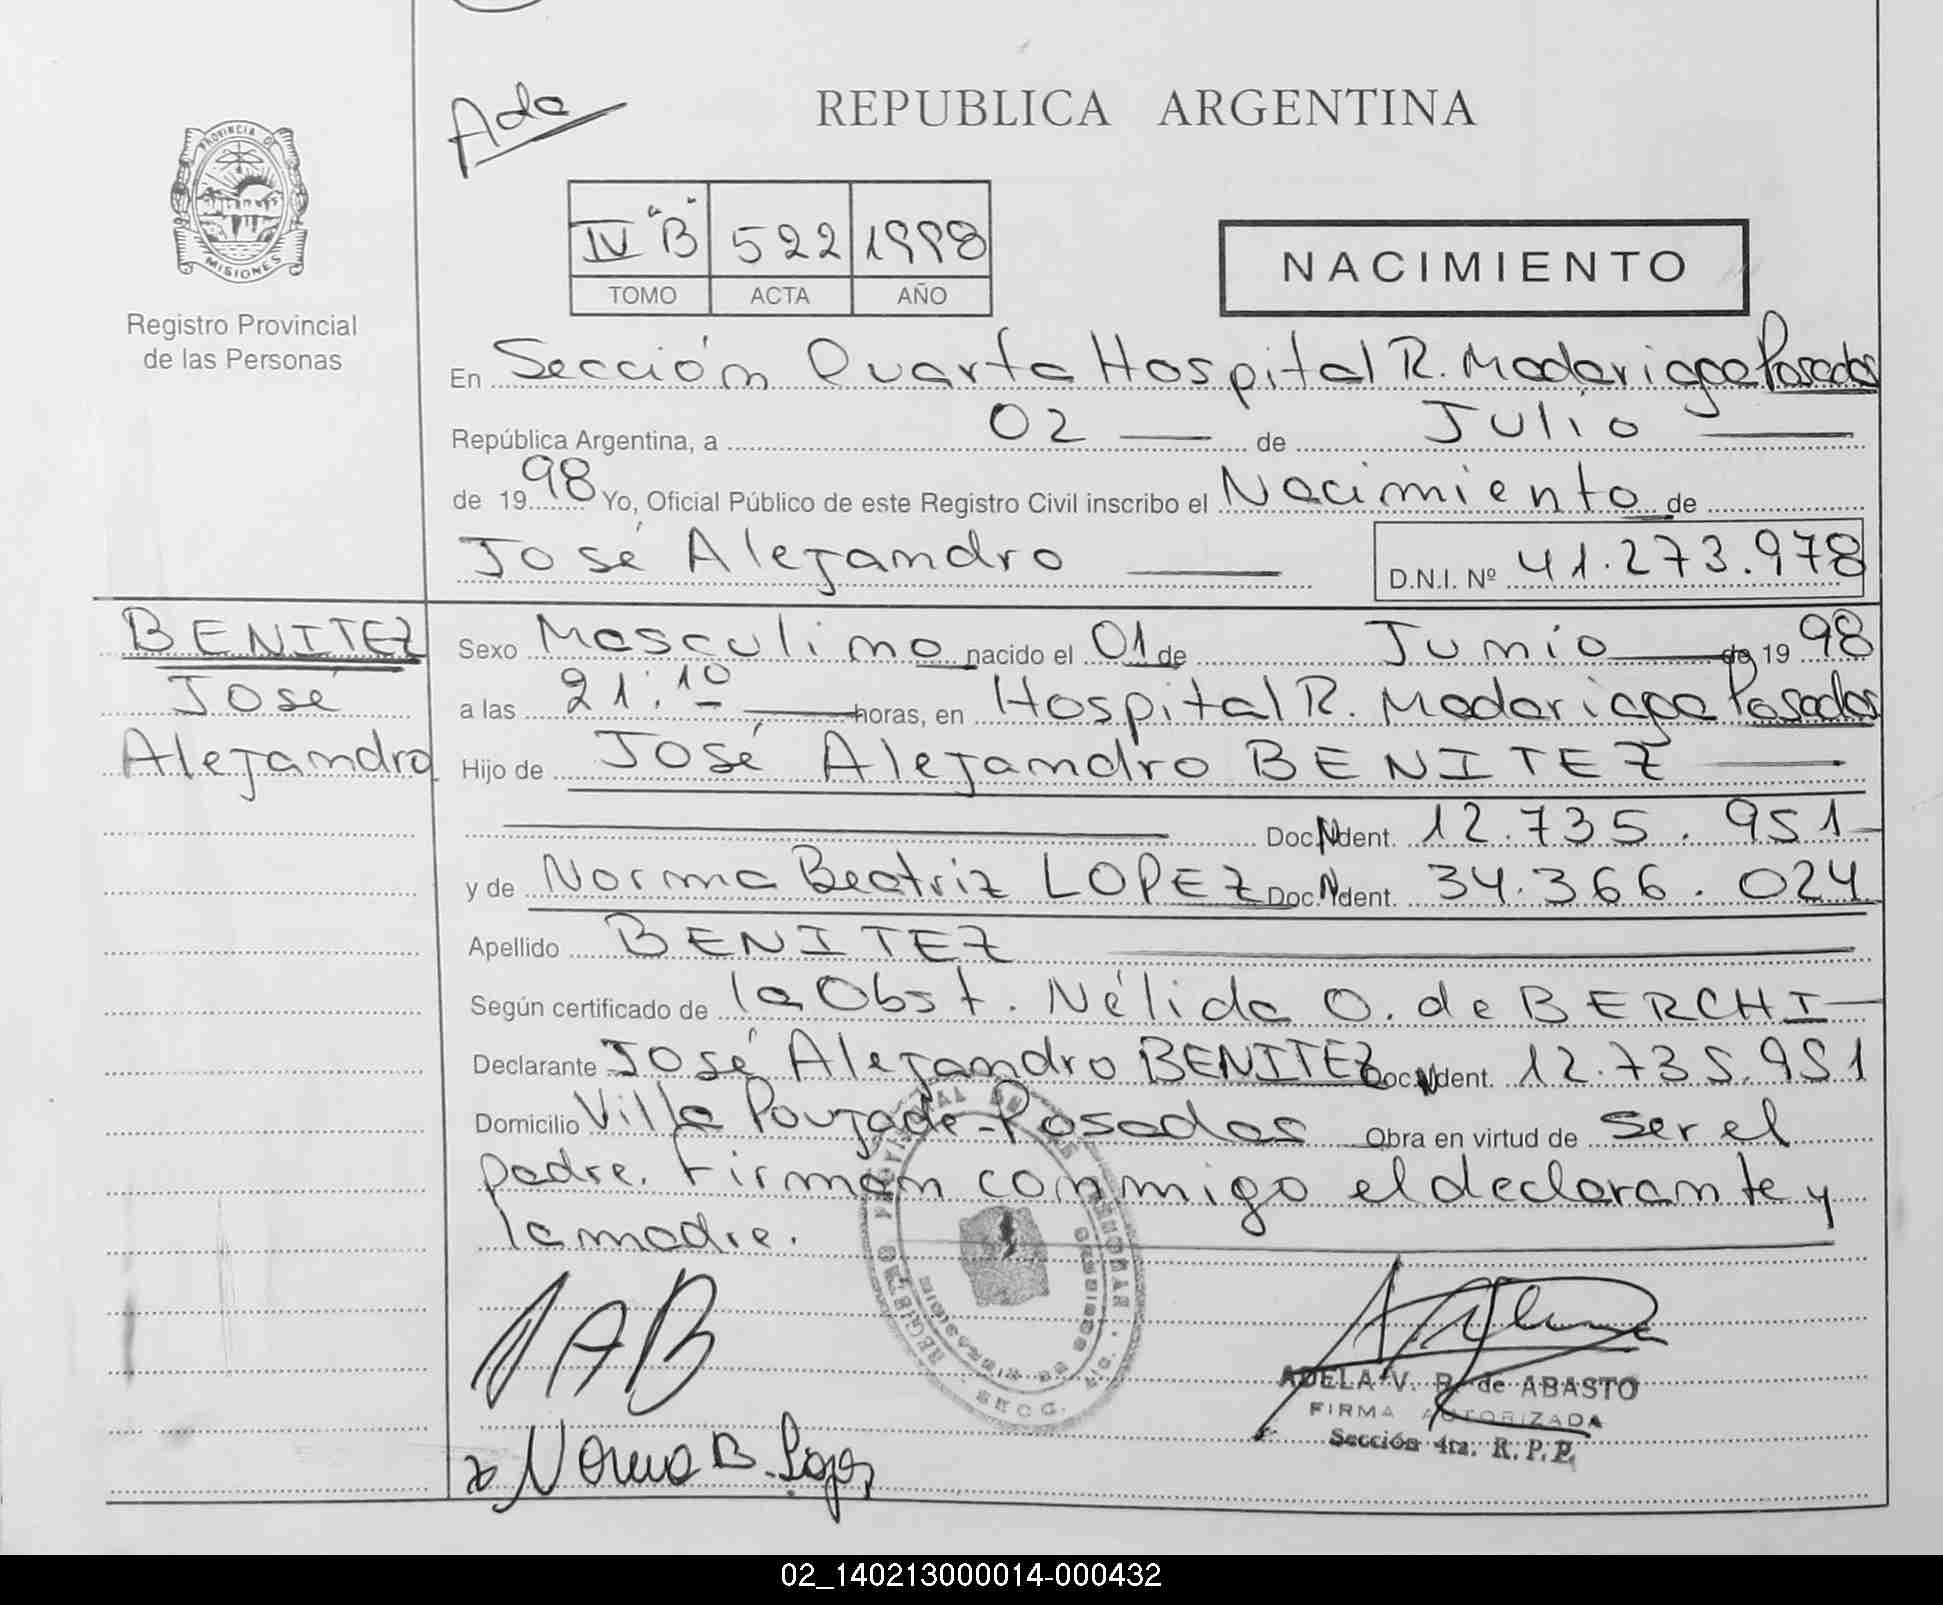 Ada
REPUBLICA ARGENTINA
PROVINCIA DE
MISIONES
Registro Provincial
de las Personas
IV "B" 522 1998
TOMO ACTA AÑO
NACIMIENTO
En Sección Quarta Hospital R. Madariaga Posadas
República Argentina, a 02 de Julio
de 1998 Yo, Oficial Público de este Registro Civil inscribo el Nacimiento de
José Alejandro D.N.I. Nº 41.273.978
BENITEZ
José
Alejandro
Sexo Masculino nacido el 01 de Junio de 1998
a las 21:10 horas, en Hospital R. Madariaga Posadas
Hijo de José Alejandro BENITEZ
Doc. N Ident. 12.735.951
y de Norma Beatriz LOPEZ Doc. N Ident. 34.366.024
Apellido BENITEZ
Según certificado de la Obst. Nélida O. de BERCHI
Declarante José Alejandro BENITEZ Doc. N Ident. 12.735.951
Domicilio Villa Poujade-Posadas Obra en virtud de ser el
padre. Firman conmigo el declarante y
la madre.
JAB
ADELA V. R. de ABASTO
FIRMA AUTORIZADA
Sección 4ta. R. P. P.
Norma B. Lopez
02_140213000014-000432